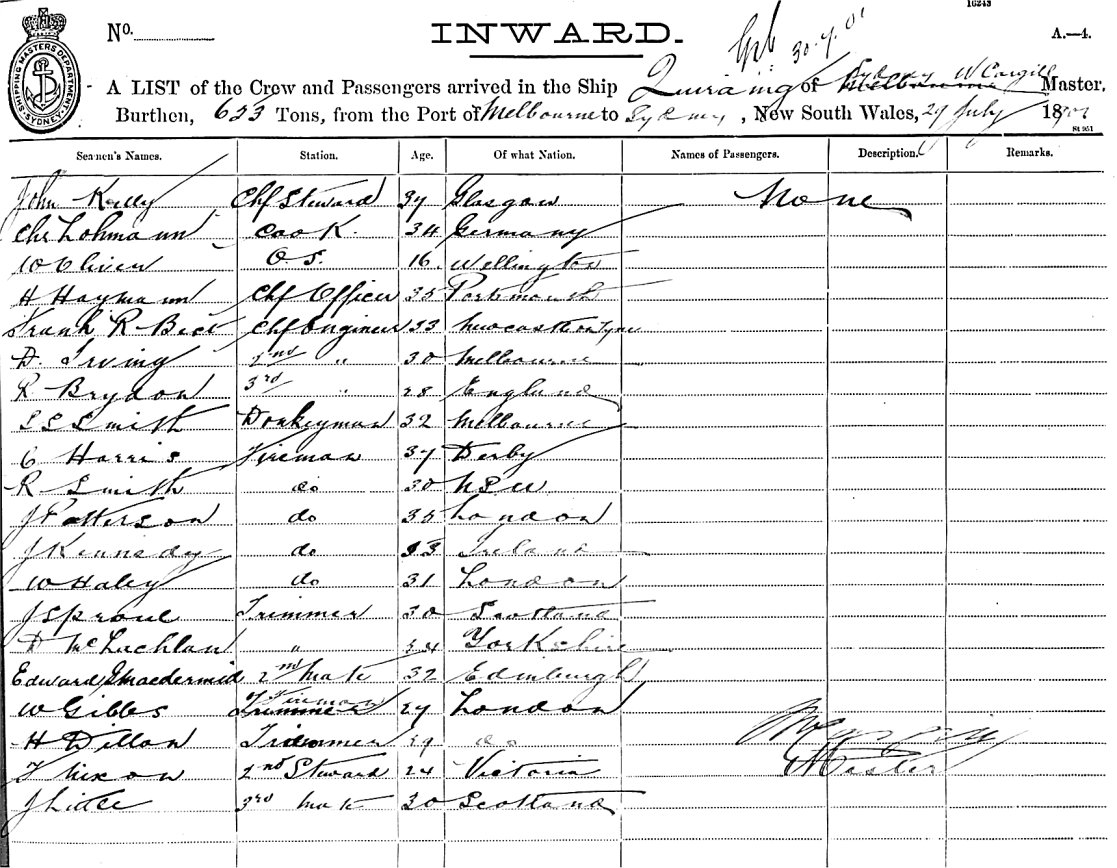 16243
No.
INWARD.
30.7.01
A.—4.
SHIPPING MASTERS DEPARTMENT SYDNEY
A LIST of the Crew and Passengers arrived in the Ship Quiraing of Melbourne Sydney W Cargill Master,
Burthen, 653 Tons, from the Port of Melbourne to Sydney, New South Wales, 29 July 1901
St 951
Seamen's Names. Station. Age. Of what Nation. Names of Passengers. Description. Remarks.
John Kelly Chf Steward 37 Glasgow None
Chs Lohmann Cook 34 Germany
W Oliver O.S. 16 Wellington
H Haymann Chf Officer 35 Portsmouth
Frank R Bect Chf Engineer 33 Newcastle on Tyne
D. Irving 2nd " 30 Melbourne
R Brydon 3rd " 28 England
S S Smith Donkeyman 32 Melbourne
C Harris Fireman 37 Derby
R Smith do 30 NSW
J Patterson do 35 London
J Kennedy do Ireland
W Haley do 31 London
J Sproul Trimmer 30 Scotland
D McLachlan " Yorkshire
Edward G Macdermid 2nd Mate 32 Edinburgh
W Gibbs Trimmer Fireman 27 London
H Dillon Trimmer 29 do
T Nixon 2nd Steward 24 Victoria
J Little 3rd Mate 30 Scotland
Master